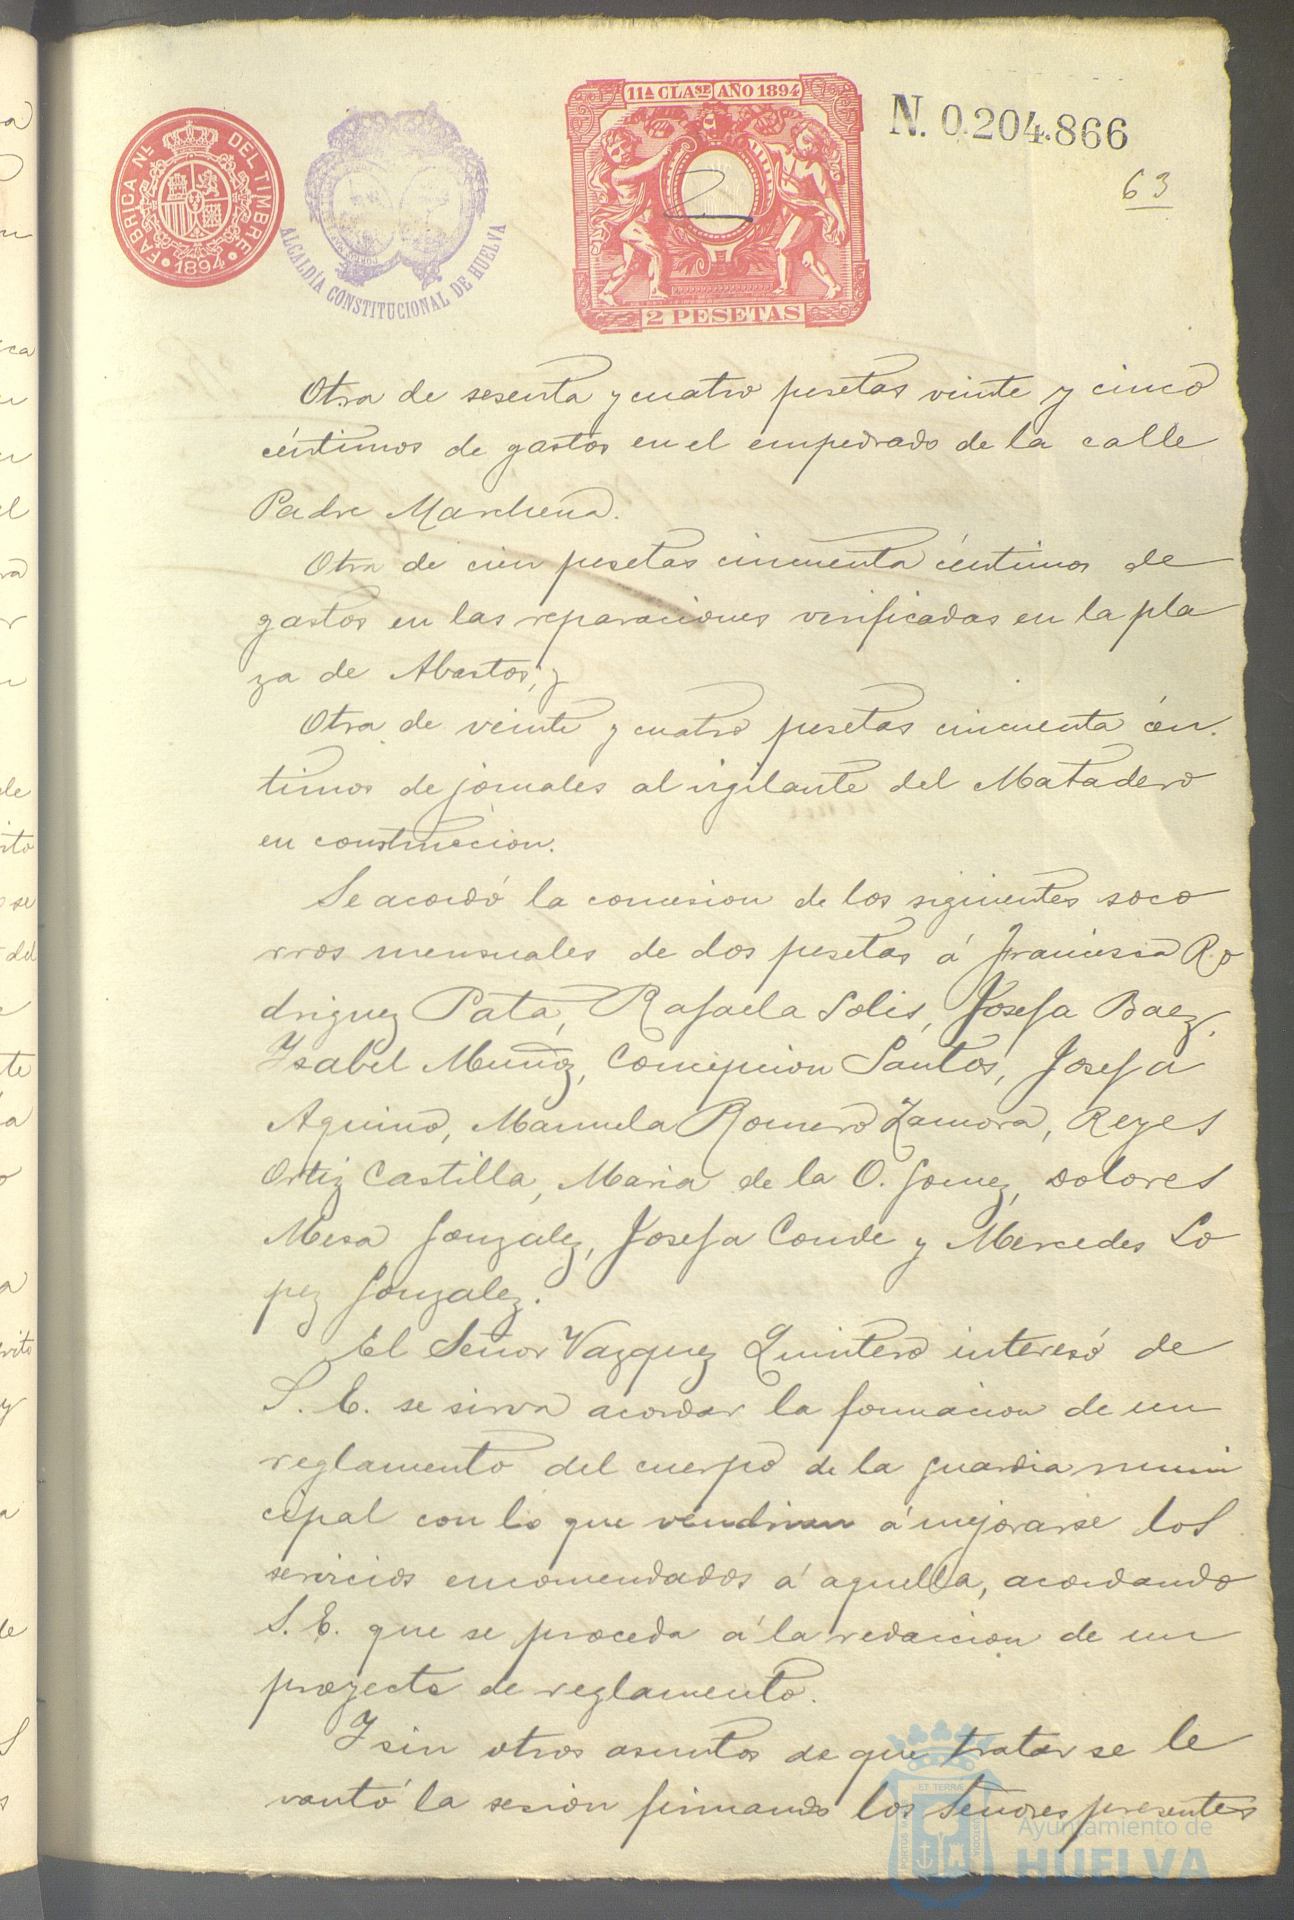 FABRICA Nal DEL TIMBRE
1894
ALCALDÍA CONSTITUCIONAL DE HUELVA
11ª CLASE AÑO 1894
2 PESETAS
N. 0.204.866
63
Otra de sesenta y cuatro pesetas veinte y cinco
céntimos de gastos en el empedrado de la calle
Padre Marchena.
Otra de cien pesetas cincuenta céntimos de
gastos en las reparaciones verificadas en la pla
za de Abastos, y
Otra de veinte y cuatro pesetas cincuenta cén-
timos de jornales al vigilante del Matadero
en construccion.
Se acordó la concesion de los siguientes soco
rros mensuales de dos pesetas á Francisca Ro
driguez Pata, Rafaela Solis, Josefa Baez,
Isabel Muñoz, Concepcion Santos, Josefa
Aquino, Manuela Romero Zamora, Reyes
Ortiz Castilla, Maria de la O. Gomez, Dolores
Mesa Gonzalez, Josefa Conde y Mercedes Lo
pez Gonzalez.
El Señor Vazquez Quintero interesó de
S. E. se sirva acordar la formacion de un
reglamento del cuerpo de la guardia muni
cipal con lo que vendrian á mejorarse los
servicios encomendados á aquella, acordando
S. E. que se proceda á la redaccion de un
proyecto de reglamento.
Y sin otros asuntos de que tratar se le
vantó la sesion firmando los Señores presentes
ET TERRÆ
PORTUS MARIS
CUSTODIA
Ayuntamiento de
HUELVA